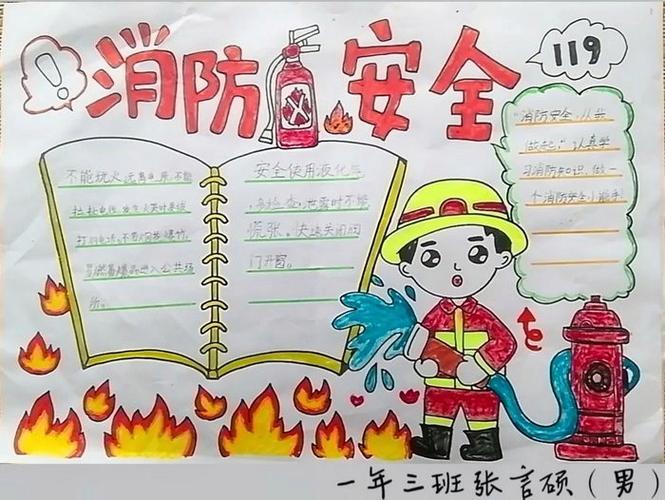 消防安全
119
不能玩火,远离电源,不能
打火电话,不要
易燃易爆品进入公共场
所。
安全使用液化气
查,泄露时不能
慌张,快速关闭阀
门开窗。
"消防安全,从我
做起,"认真学
习消防知识,做一
个消防安全小能手
一年三班张言硕(男)